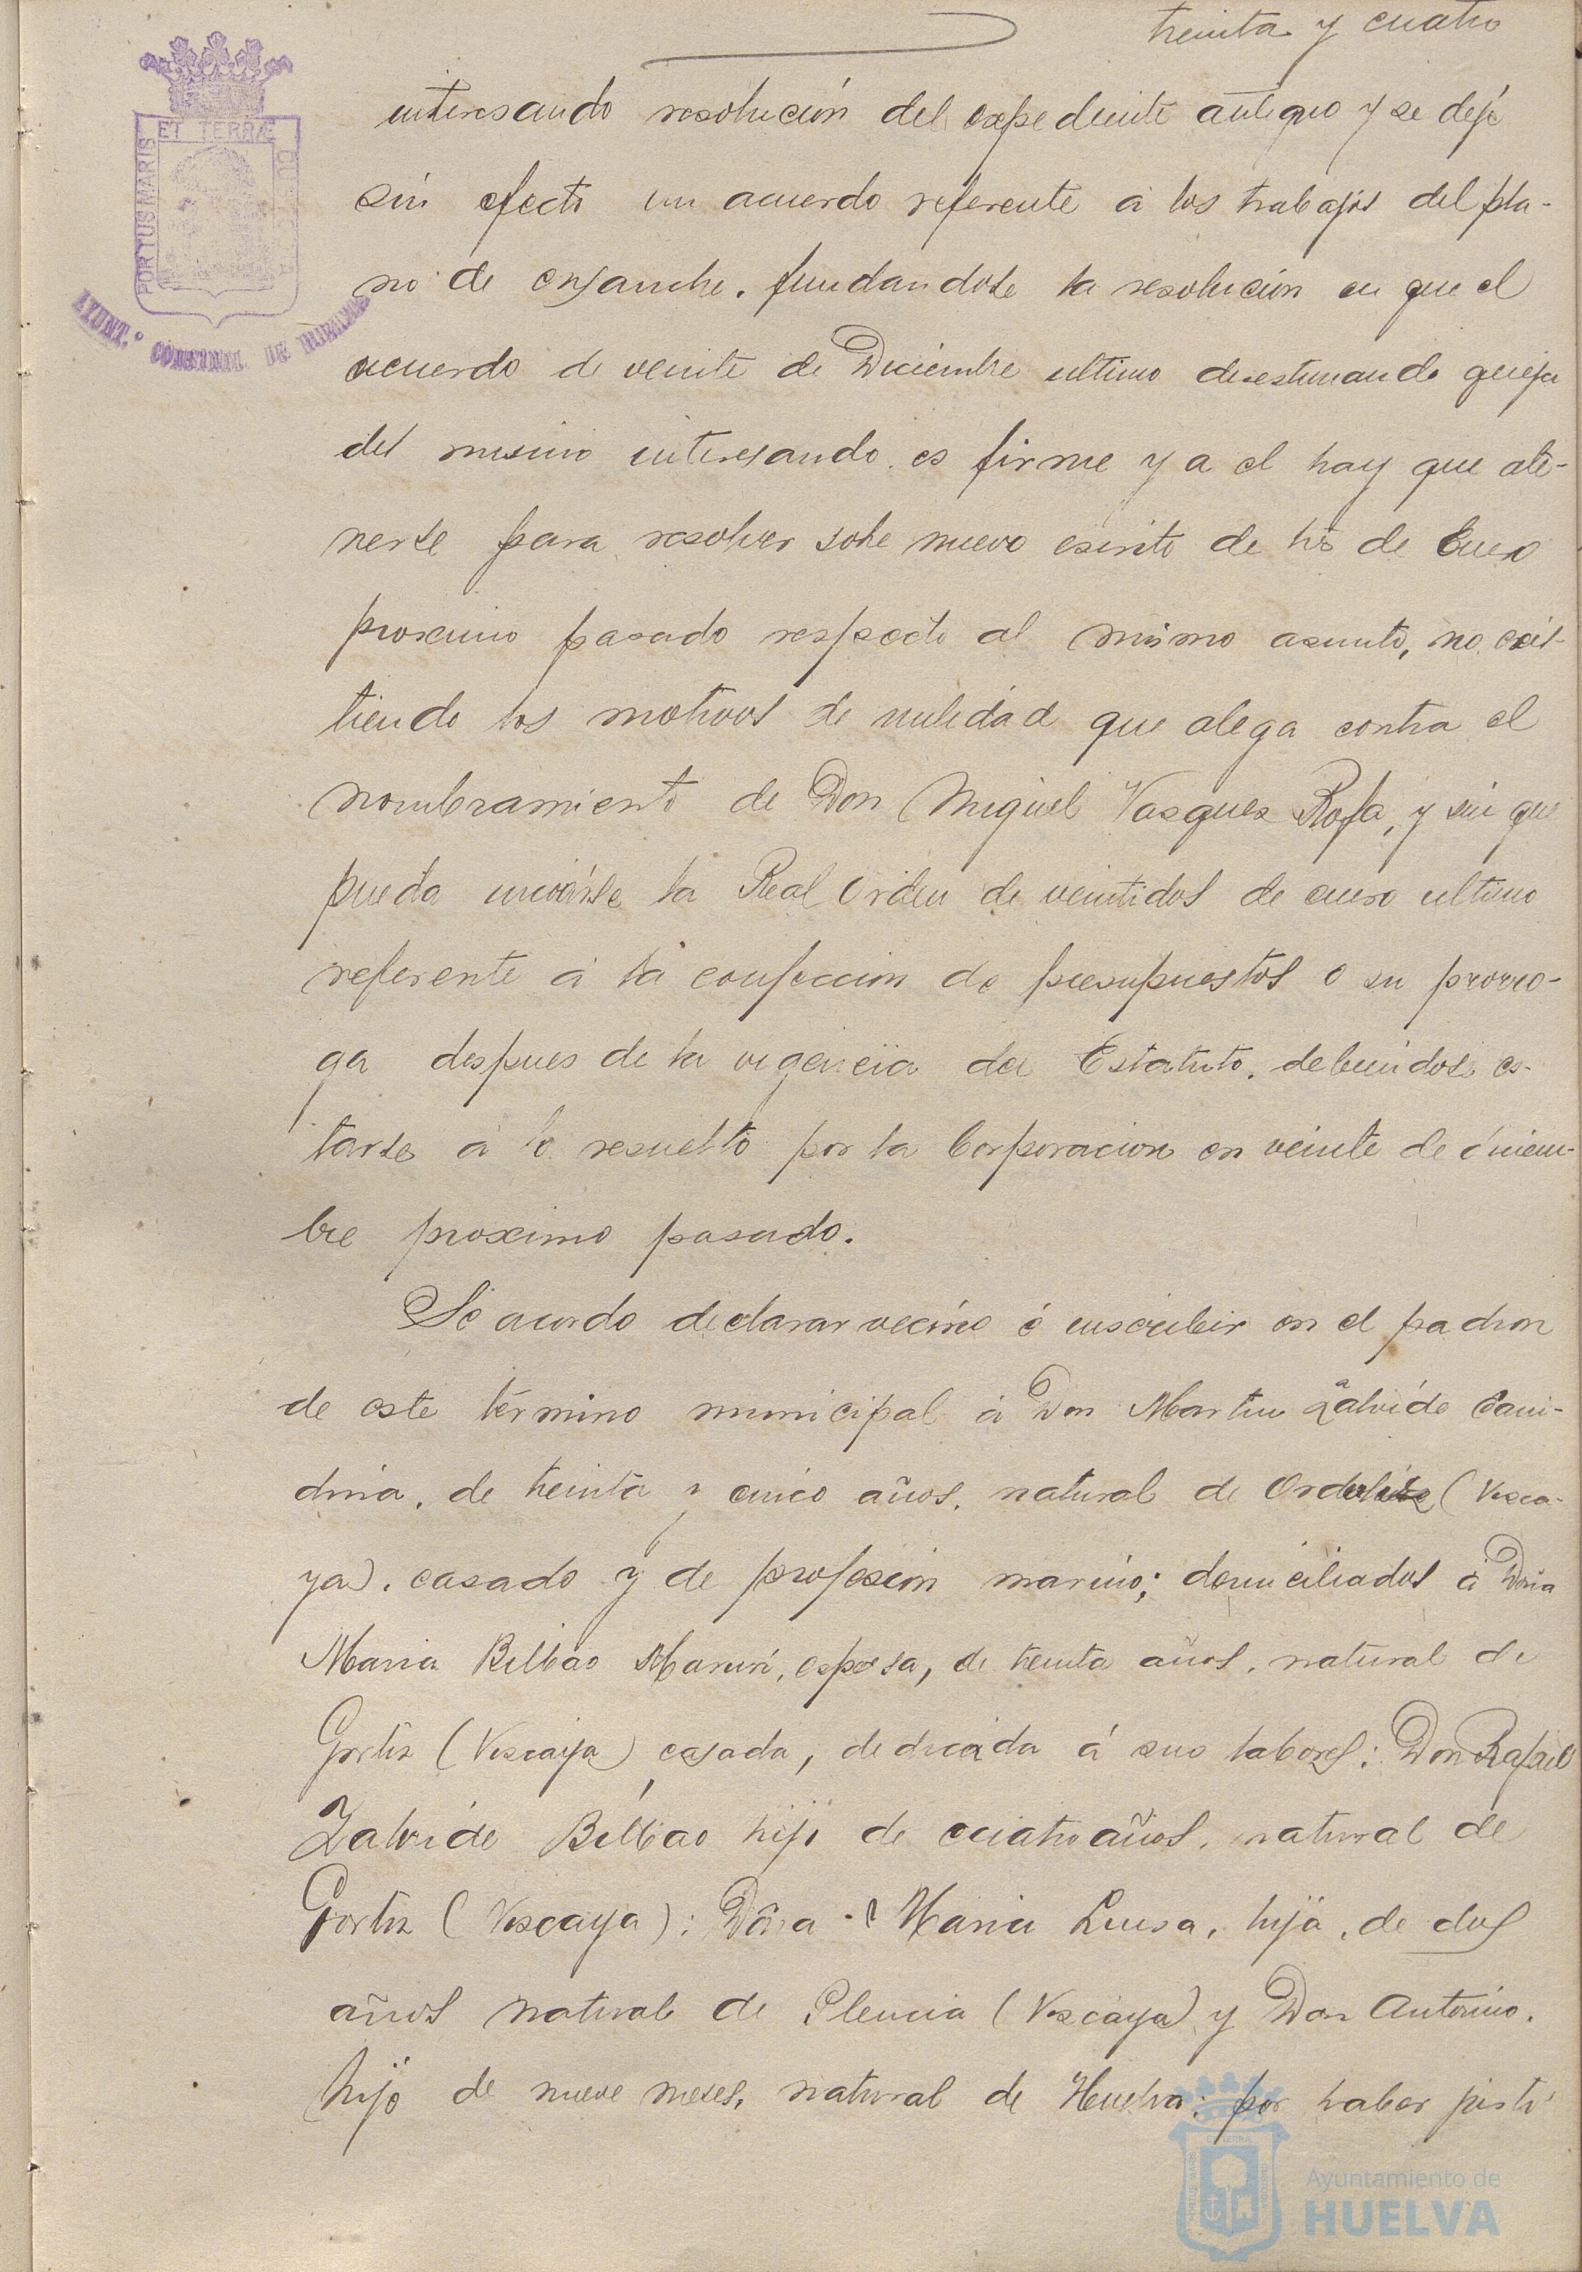 treinta y cuatro
interesando resolución del expediente antiguo y se deje
sin efecto un acuerdo referente á los trabajos del pla-
no de ensanche, fundandose la resolución en que el
acuerdo de veinte de Diciembre ultimo desestimando queja
del mismo interesando es firme y a el hay que ate-
nerse para resolver sobre nuevo escrito de tres de Enero
proximo pasado respecto al mismo asunto, no exis-
tiendo los motivos de nulidad que alega contra el
nombramiento de Don Miguel Vasquez Rofa, y sin que
pueda invocarse la Real Orden de veintidos de enero ultimo
referente á la confeccion de presupuestos o su prorro-
ga despues de la vigencia del Estatuto, debiendose es-
tarse á lo resuelto por la Corporacion en veinte de diciem-
bre proximo pasado.
Se acordo declarar vecino é inscribir en el padron
de este término municipal á Don Martin Zalvide
de treinta y cinco años, natural de (Vizca-
ya), casado y de profesión marino; domiciliados á Doña
Maria Bilbao Maruri, esposa, de treinta años, natural de
Gortiz (Viscaya) casada, dedicada á sus labores; Don Rafael
Zalvide Bilbao hijo de cuatro años, natural de
Gortiz (Viscaya); Doña Maria Luisa, hija, de dos
años natural de Plencia (Viscaya) y Don Antonino,
hijo de nueve meses, natural de Huelva; por haber justi
PORTUS MARIS ET TERRÆ CUSTODIA
AYUNT.º CONSTITNAL. DE HUELVA
Ayuntamiento de
HUELVA